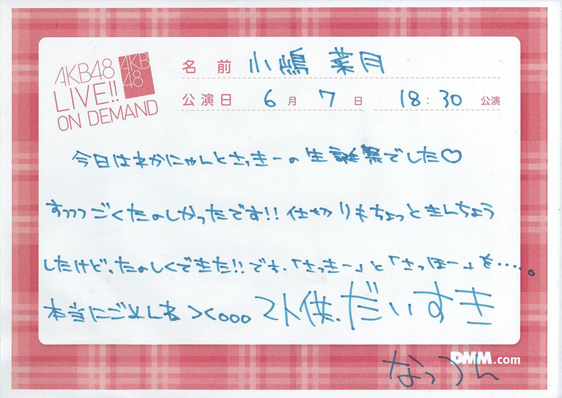 AKB48
LIVE!!
ON DEMAND
AKB
48
名前 小嶋 菜月
公演日 6月 7日 18:30 公演
今日はわかにゃんとさっきーの生誕祭でした♡
すっっっごくたのしかったです!!仕切りもちょっときんちょう
したけど、たのしくできた!!でも、「さっきー」と「さっほー」を……。
本当にごめんね 2人供、だいすき
なっつん
DMM.com